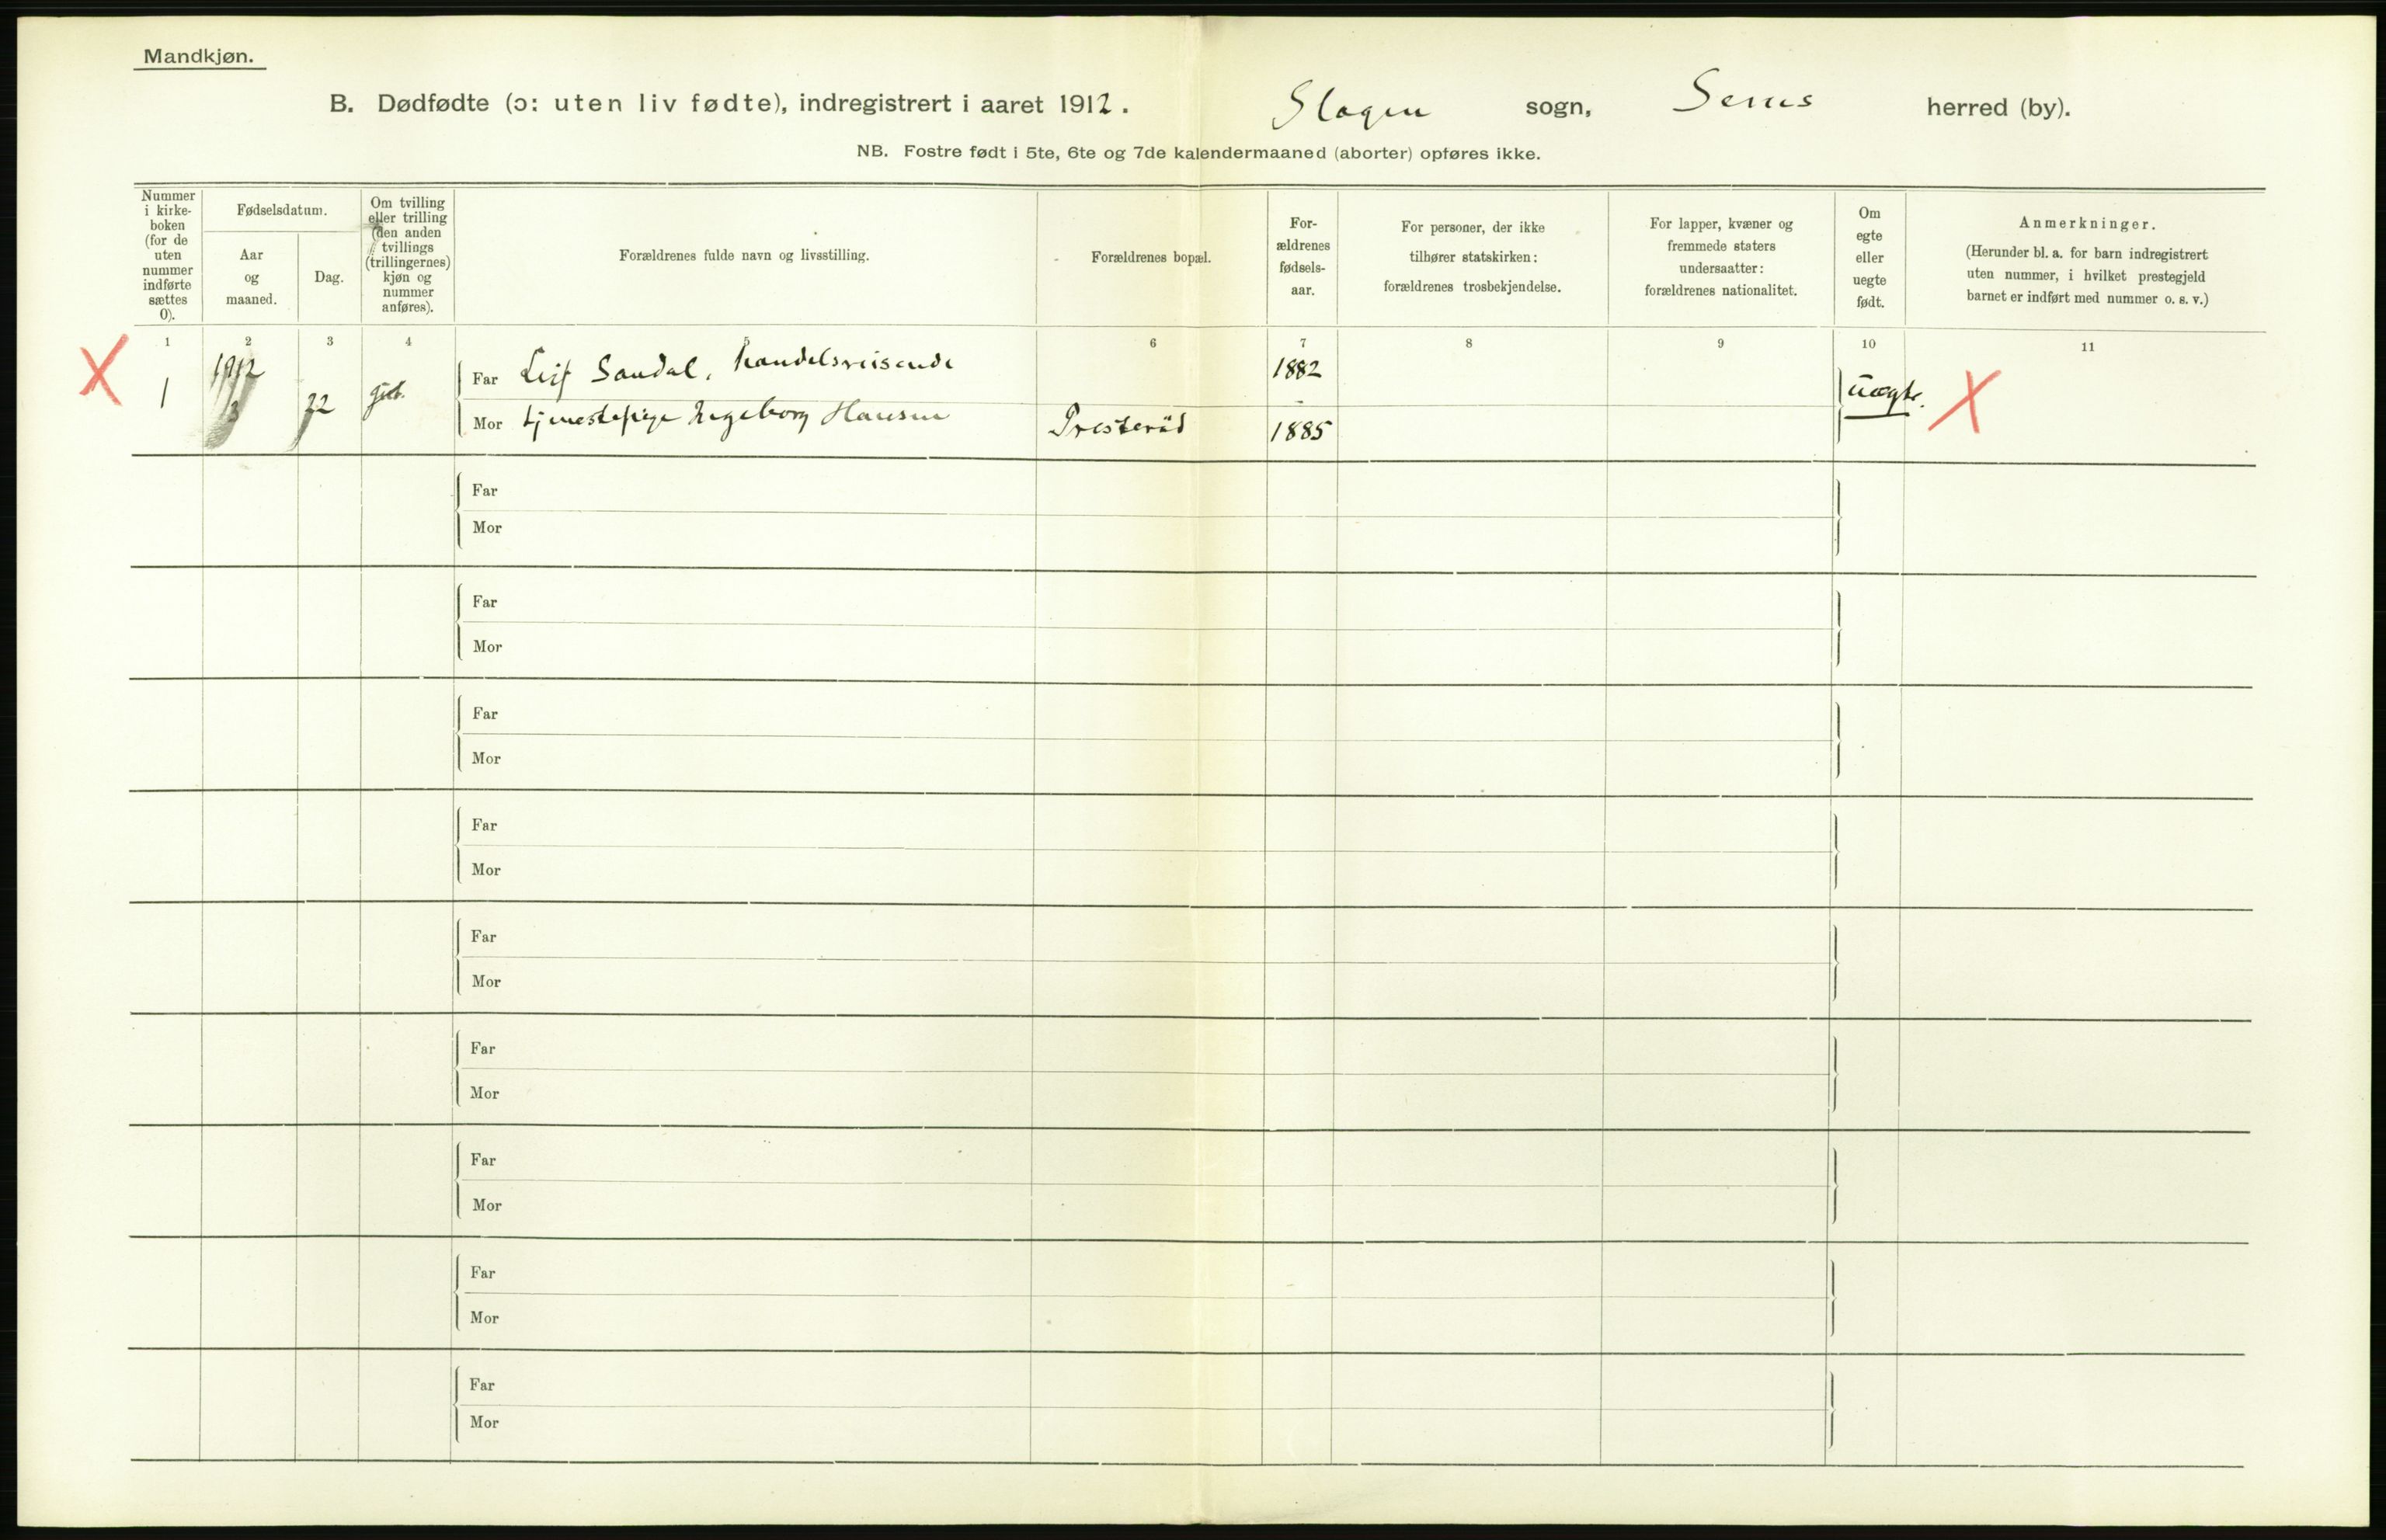 Mandkjøn.
B. Dødfødte (ɔ: uten liv fødte), indregistrert i aaret 1912. Slagen sogn, Sems herred (by).
NB. Fostre født i 5te, 6te og 7de kalendermaaned (aborter) opføres ikke.
Nummer
i kirke-
boken
(for de
uten
nummer
indførte
sættes
0).
Fødselsdatum.
Aar
og
maaned.
Dag.
Om tvilling
eller trilling
(den anden
tvillings
(trillingernes)
kjøn og
nummer
anføres).
Forældrenes fulde navn og livsstilling.
Forældrenes bopæl.
For-
ældrenes
fødsels-
aar.
For personer, der ikke
tilhører statskirken:
forældrenes trosbekjendelse.
For lapper, kvæner og
fremmede staters
undersaatter:
forældrenes nationalitet.
Om
egte
eller
uegte
født.
Anmerkninger.
(Herunder bl. a. for barn indregistrert
uten nummer, i hvilket prestegjeld
barnet er indført med nummer o. s. v.)
1 2 3 4 5 6 7 8 9 10 11
X 1 1912 3 22 Far Leif Sandal, handelsreisende 1882 uægte. X
Mor tjenestepige Ingeborg Hansen Presteröd 1885
Far
Mor
Far
Mor
Far
Mor
Far
Mor
Far
Mor
Far
Mor
Far
Mor
Far
Mor
Far
Mor